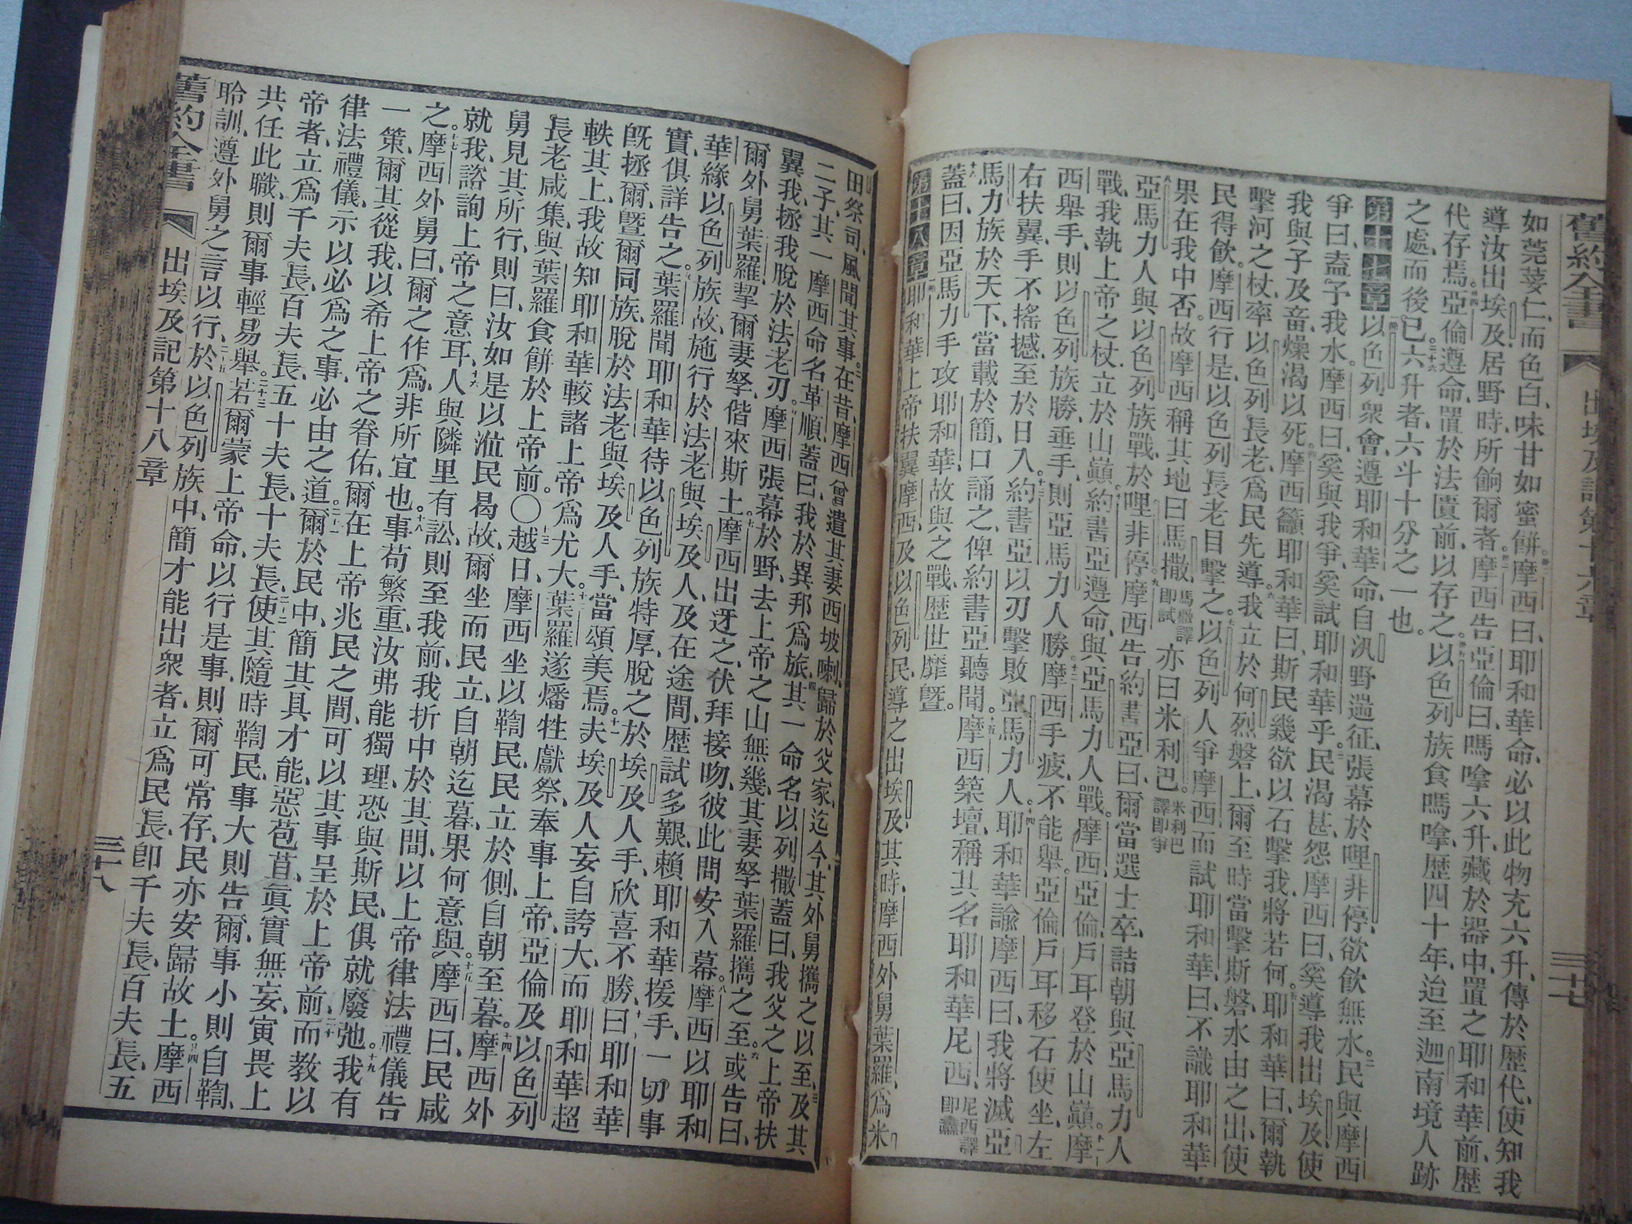 舊約全書
出埃及記第十六章
三十七
如莞荽仁而色白、味甘如蜜餅、摩西曰、耶和華命必以此物充六升、傳於歷代、使知我
導汝出埃及居野時、所餉爾者、摩西告亞倫曰、嗎嗱六升、藏於器中、置之耶和華前、歷
代存焉、亞倫遵命、置於法匱前以存之、以色列族食嗎嗱、歷四十年、迨至迦南境人跡
之處、而後已、六升者、六斗十分之一也。
第十七章 以色列衆會、遵耶和華命、自汛野遄征、張幕於哩非停、欲飲無水、民與摩西
爭曰、盍予我水、摩西曰、奚與我爭、奚試耶和華乎、民渴甚、怨摩西曰、奚導我出埃及、使
我與子及畜、燥渴以死、摩西籲耶和華曰、斯民幾欲以石擊我、將若何、耶和華曰、爾執
擊河之杖、率以色列長老、爲民先導、我立於何烈磐上、爾至時當擊斯磐、水由之出、使
民得飲、摩西行是、以色列長老目擊之、以色列人爭摩西而試耶和華曰、不識耶和華
果在我中否、故摩西稱其地曰馬撒、馬撒譯即試 亦曰米利巴。米利巴譯即爭
亞馬力人與以色列族戰於哩非停、摩西告約書亞曰、爾當選士卒、詰朝與亞馬力人
戰、我執上帝之杖、立於山巔、約書亞遵命、與亞馬力人戰、摩西亞倫戶耳登於山巔、摩
西舉手、則以色列族勝、垂手、則亞馬力人勝、摩西手疲、不能舉、亞倫戶耳移石使坐、左
右扶翼、手不搖撼、至於日入、約書亞以刃擊敗亞馬力人、耶和華諭摩西曰、我將滅亞
馬力族於天下、當載於簡、口誦之、俾約書亞聽聞、摩西築壇、稱其名耶和華尼西、尼西譯即纛
蓋曰、因亞馬力手攻耶和華、故與之戰、歷世靡曁。
第十八章 耶和華上帝扶翼摩西、及以色列民、導之出埃及、其時摩西外舅葉羅、爲米
田祭司、風聞其事、在昔摩西曾遣其妻西坡喇、歸於父家、迄今其外舅攜之以至、及其
二子、其一摩西命名革順、蓋曰、我於異邦爲旅、其一命名以列撒、蓋曰、我父之上帝扶
翼我、拯我脫於法老刃、摩西張幕於野、去上帝之山無幾、其妻孥葉羅攜之至、或告曰、
爾外舅葉羅、挈爾妻孥、偕來斯土、摩西出迓之、伏拜接吻、彼此問安入幕、摩西以耶和
華緣以色列族故、施行於法老與埃及人、及在途間歷試多艱、賴耶和華援手、一切事
實、俱詳告之、葉羅聞耶和華待以色列族特厚、脫之於埃及人手、欣喜不勝、曰、耶和華
旣拯爾、曁爾同族、脫於法老與埃及人手、當頌美焉、夫埃及人妄自誇大、而耶和華超
軼其上、我故知耶和華較諸上帝爲尤大、葉羅遂燔牲獻祭、奉事上帝、亞倫及以色列
長老咸集、與葉羅食餅於上帝前○越日、摩西坐以鞫民、民立於側、自朝至暮、摩西外
舅見其所行、則曰、汝如是以涖民曷故、爾坐而民立、自朝迄暮、果何意與、摩西曰、民咸
就我諮詢上帝之意耳、人與隣里有訟、則至我前、我折中於其間、以上帝律法禮儀告
之、摩西外舅曰、爾之作爲、非所宜也、事苟繁重、汝弗能獨理、恐與斯民、俱就廢弛、我有
一策、爾其從我、以希上帝之眷佑、爾在上帝兆民之間、可以其事呈於上帝前、而教以
律法禮儀、示以必爲之事、必由之道、爾於民中、簡其具才能、惡苞苴、眞實無妄、寅畏上
帝者、立爲千夫長、百夫長、五十夫長、十夫長、使其隨時鞫民、事大則告爾、事小則自鞫、
共任此職、則爾事輕易舉、若爾蒙上帝命以行是事、則爾可常存、民亦安歸故土、摩西
聆訓、遵外舅之言以行、於以色列族中、簡才能出衆者、立爲民長、卽千夫長、百夫長、五
舊約全書
出埃及記第十八章
三十八